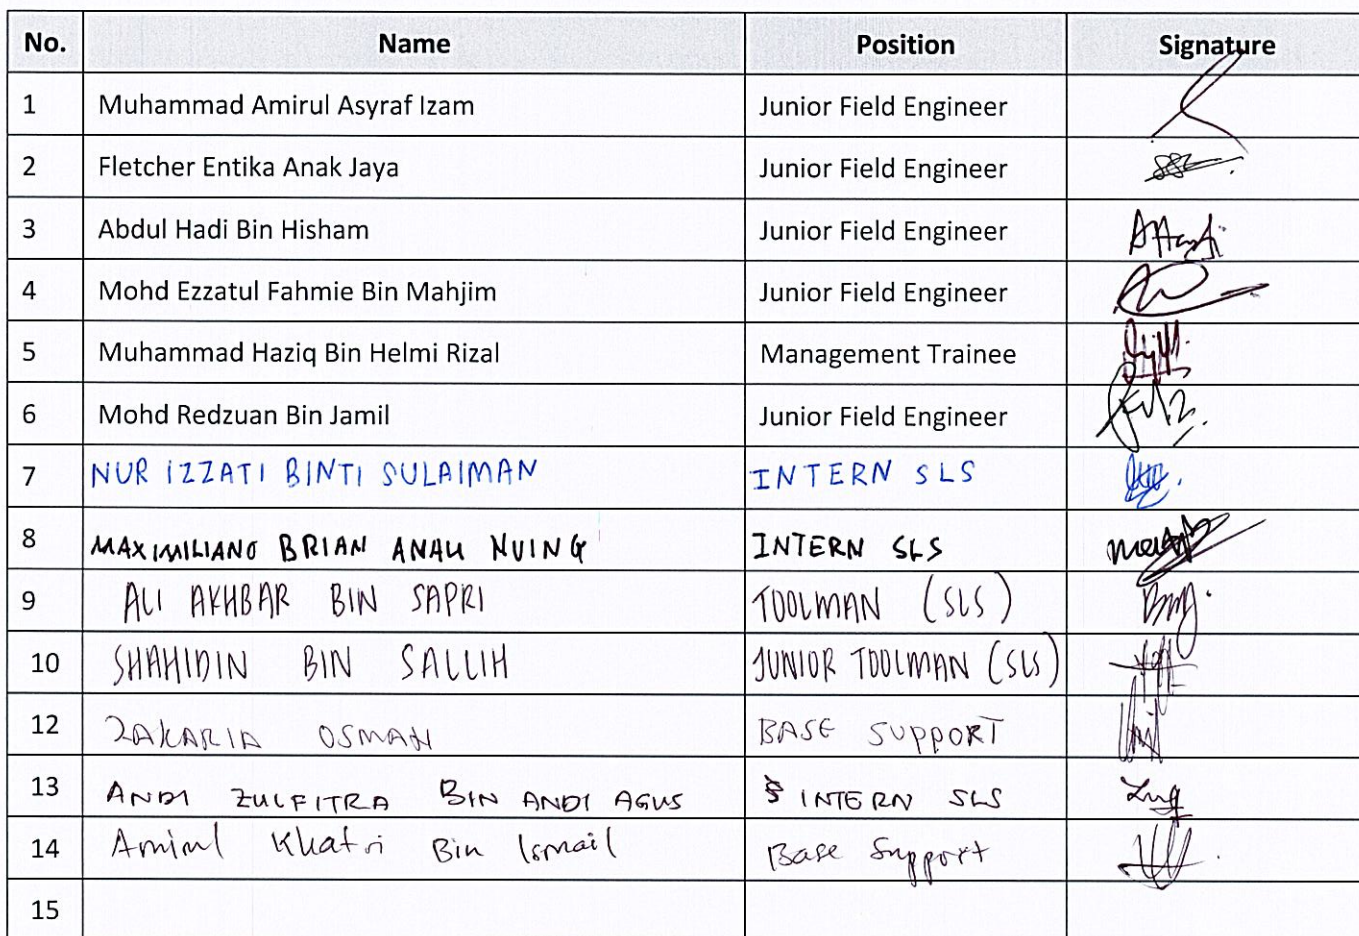 No. Name Position Signature
1 Muhammad Amirul Asyraf Izam Junior Field Engineer
2 Fletcher Entika Anak Jaya Junior Field Engineer
3 Abdul Hadi Bin Hisham Junior Field Engineer
4 Mohd Ezzatul Fahmie Bin Mahjim Junior Field Engineer
5 Muhammad Haziq Bin Helmi Rizal Management Trainee
6 Mohd Redzuan Bin Jamil Junior Field Engineer
7 NUR IZZATI BINTI SULAIMAN INTERN SLS
8 MAXIMILIANO BRIAN ANAK NUING INTERN SLS
9 ALI AKHBAR BIN SAPRI TOOLMAN (SLS)
10 SHAHIDIN BIN SALLIH JUNIOR TOOLMAN (SLS)
12 ZAKARIA OSMAN BASE SUPPORT
13 ANDI ZULFITRA BIN ANDI AGUS INTERN SLS
14 Amirul Khatri Bin Ismail Base Support
15